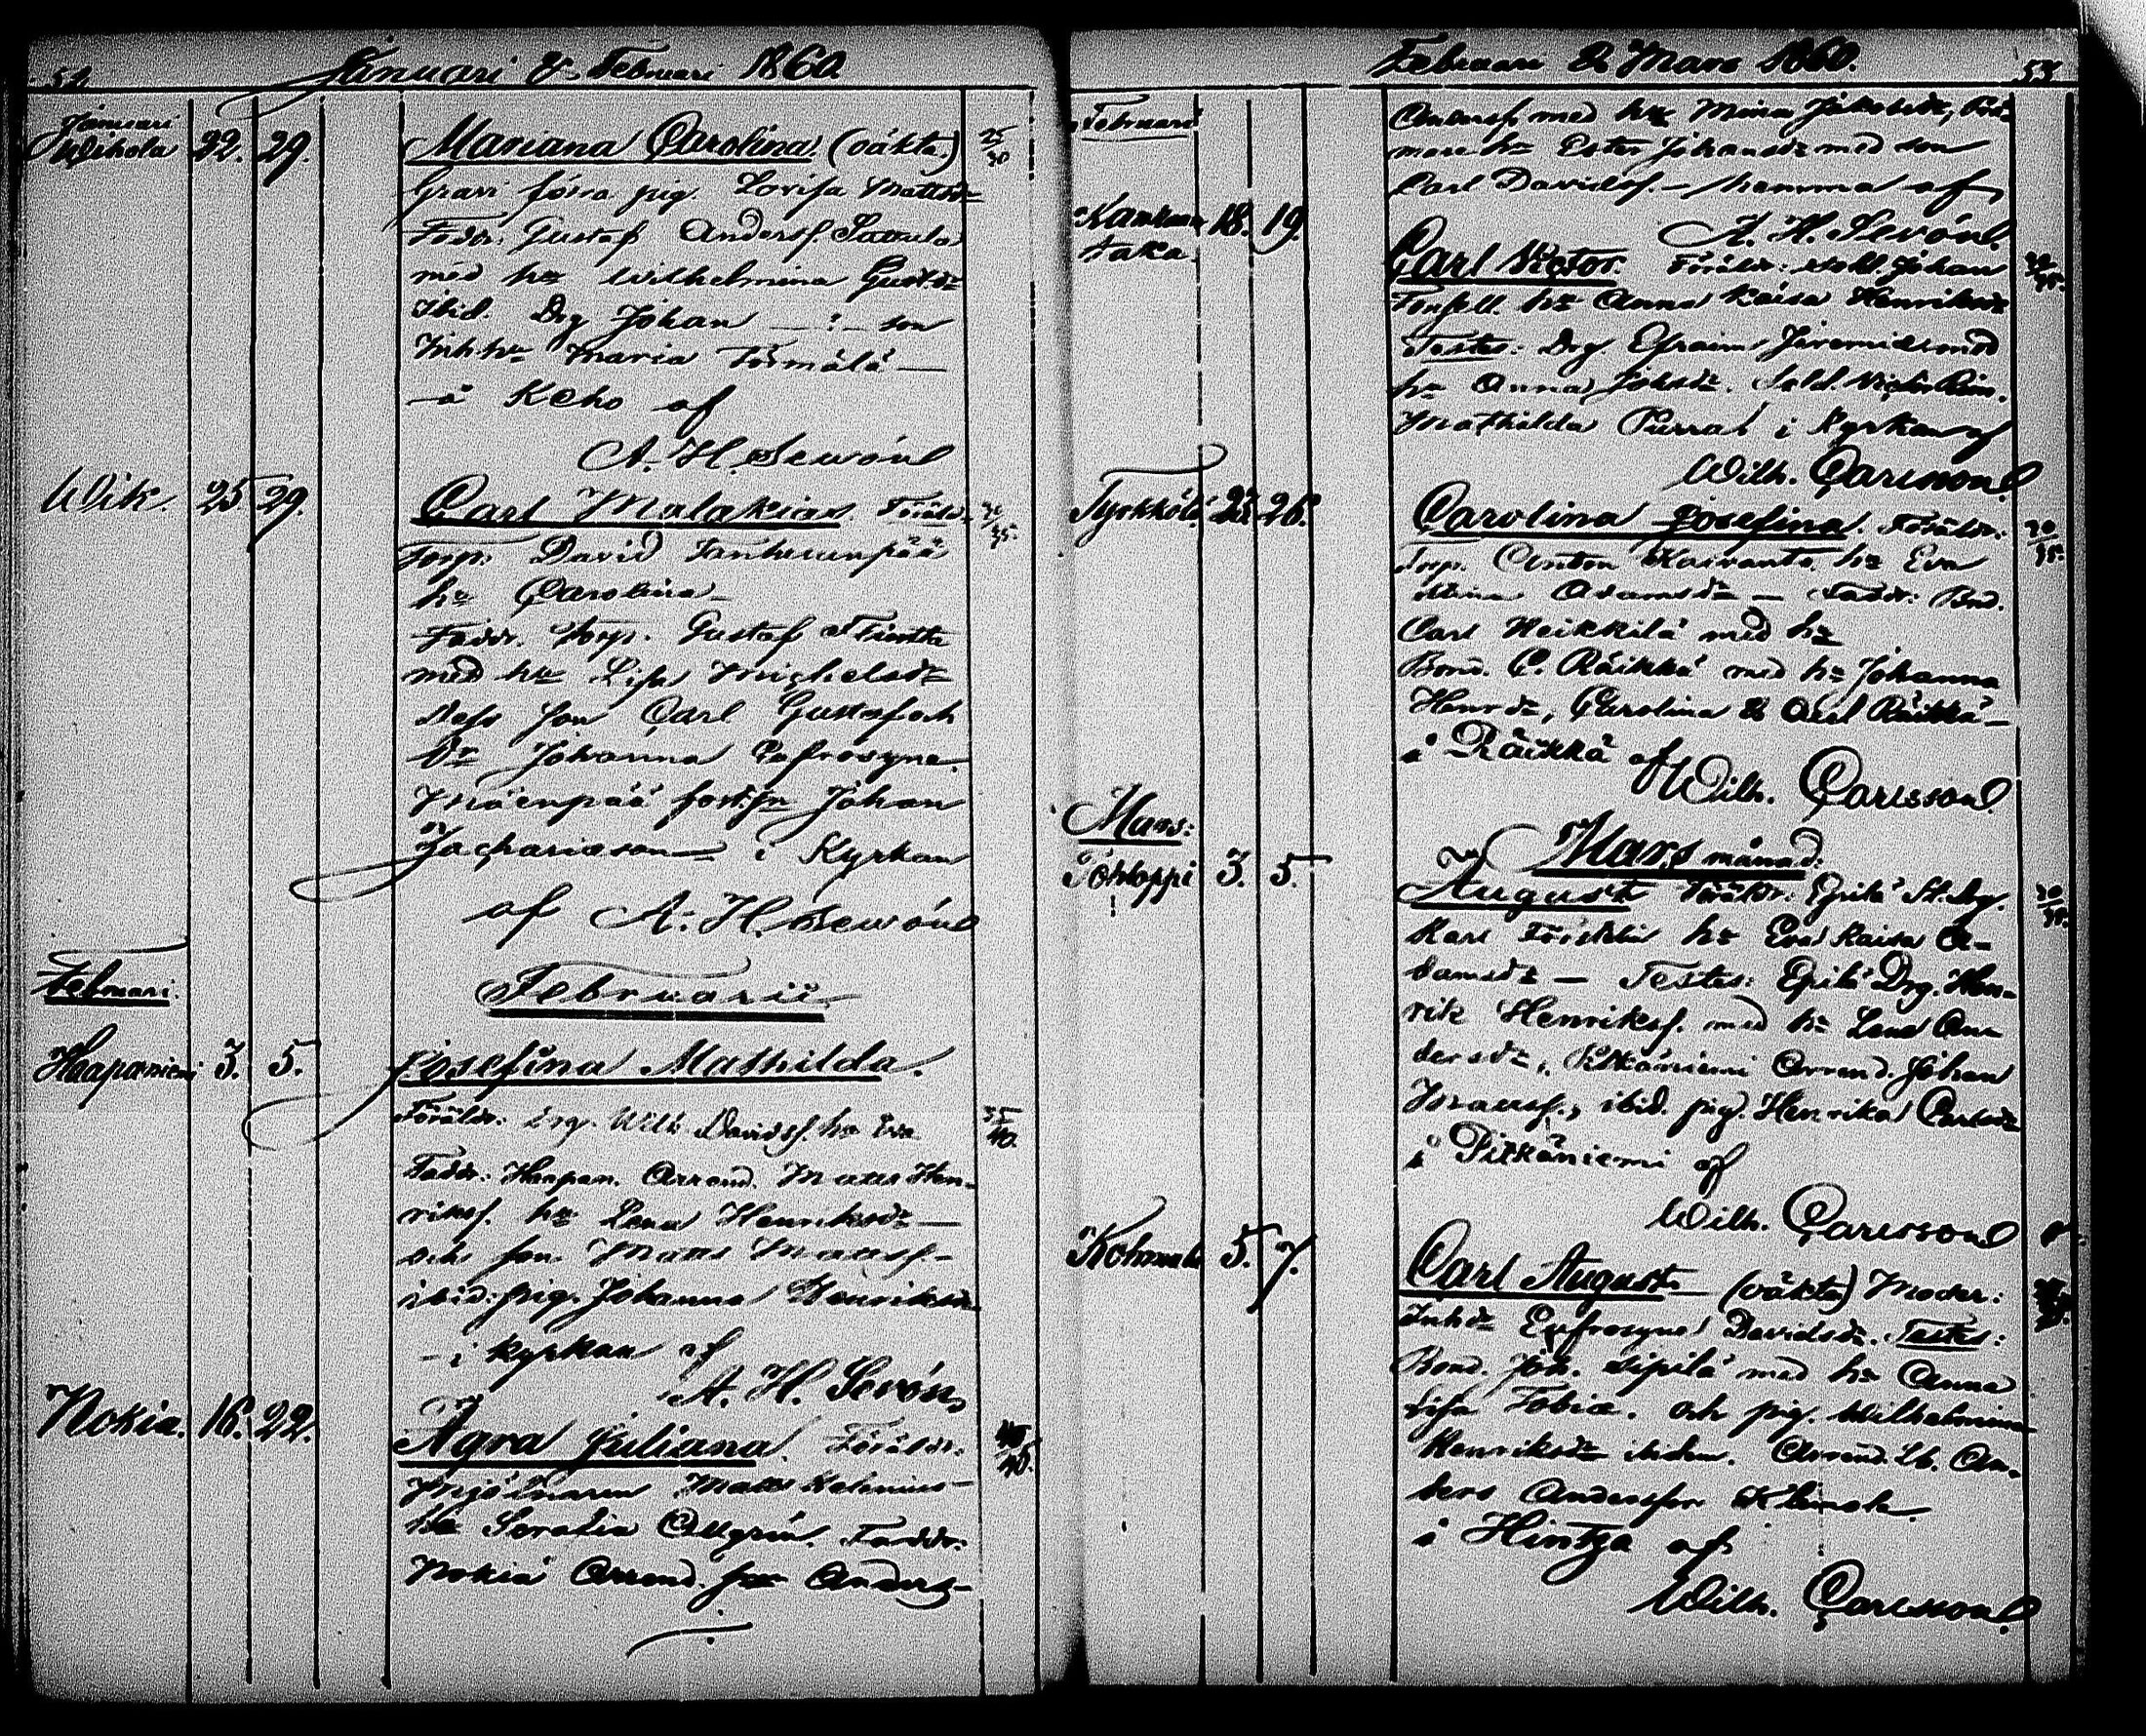 52. Januari & Februari 1860.
Januari
Wihola 22. 29. Mariana Carolina (oäkta) 25/30
pig. Lovisa Mattsdr
Faddr: Gustaf Andersf. Sattula
med hr Wilhelmina Gustdr
Ibid. Drg Johan —:— son
Inh. hr Maria Tormälä —
å Keho af
A. H. Sewón
Wik. 25. 29. Carl Malakias. Föräldr. 30/35.
Torp: David Tanhuanpää
hr Carolina —
Faddr. Torp. Gustaf
med hr Lisa Michelsdr
dess son Carl Gustaf och
dr Johanna Eufrosyne.
Mäenpää Johan
Zachariasson — i Kyrkan
af A. H. Sewón
Februari.
Februarii
Haapaniemi 3. 5. Josefina Mathilda.
Föräldr: Drg. Will: Davidsf. hr Eva 35/40.
Faddr: Haapan. Arrend. Matts Hen-
riksf. hr Lena Henriksdr —
och son Matts Mattsf. —
ibid: pig. Johanna Henriksdr
— i kyrkan af
A. H. Sevón
Nokia. 16. 22. Agra Juliana. Föräldr:
Mjölnaren Matts Helenius —
hr Serafia Allgrén. Faddr:
Nokia Arrend. Anders —
Februari & Mars 1860. 53
Februari
Andersf. med hr Mina Jakobsdr,
hr Ester Johansdr med son
Carl Davidsf. — hemma af
A. H. Sewón.
Kankaan-
taka. 18. 19. Carl Victor. Föräldr: sold. Johan
hr Anna Kaisa Henriksdr
Testes: Drg. Efraim Jeremiesmed
hr Anna Johsdr. Sold. Victor
Mathilda Purra i Kyrkan af
Wilh. Carlsson.
Tyrkkölä 23. 26. Carolina Josefina. Föräldr: 30/35.
Torp. Anton Kaivanto, hr Eva
Stina Adamsdr — Faddr: Bnd.
Carl Heikkilä med hr
Bond. C. Räikkä med hr Johanna
Henrdr, Carolina & Axel Räikkä —
i Räikkä af Wilh. Carlsson.
Mars: Mars månad:
Tohloppi 3. 5. August Föräldr: Epilä St. drg. 30/35.
Karl hr Eva Kaisa A-
damsdr — Testes: Epilä Drg. Hen-
rik Henriksf. med hr Lena An-
dersdr, Pitkäniemi Arrend. Johan
ibid. pig. Henrika Carlsdr
i Pitkäniemi af
Wilh. Carlsson
Kohmala 5. 7. Carl August. (oäkta) Moder:
Inhdr Eufrosyne Davidsdr. Testes:
Bond. Joh. Sipilä med hr Anna
Lisa Tobiæ. och pig. Wilhelmina
Henriksdr ibidem. Arrend. An-
ders Andersson
i Hintza af
Wilh. Carlsson.